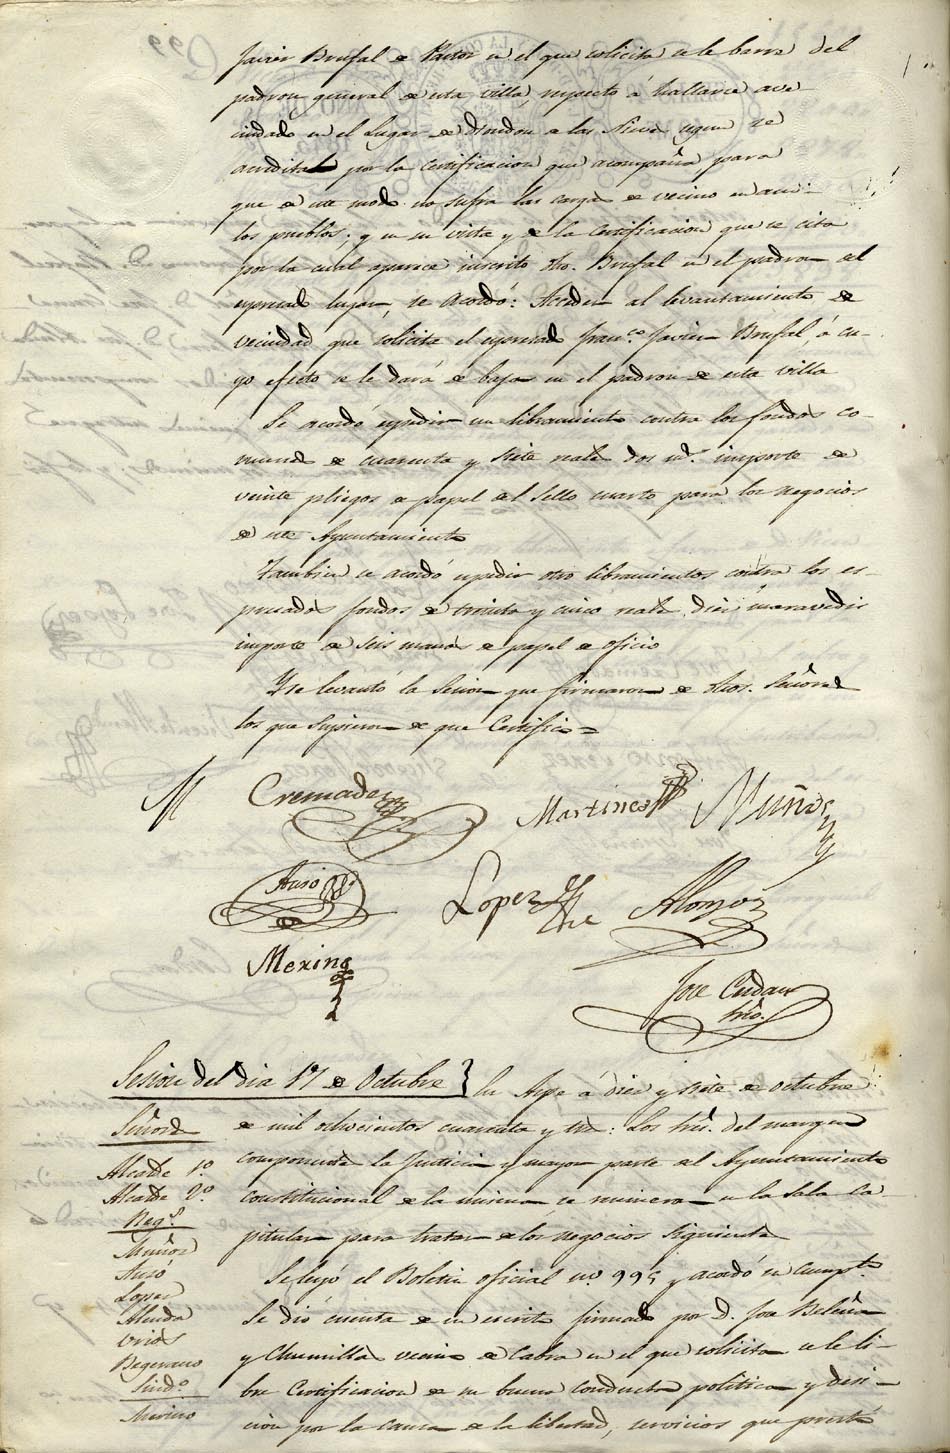 Javier Brufal de Pastor en el que solicita se le borre del
padron general de esta villa, respecto á hallarse ave-
cindado en el Lugar de Hondon de las Nieves segun se
acredita por la certificacion que acompaña para
que de este modo no sufra las cargas de vecino en am-
los pueblos; y en su vista y de la certificacion que se cita
por la cual aparece inscrito dho. Brufal en el padron del
espresado lugar, se acordó: Acceder al levantamiento de
vecindad que solicita el espresado Franco. Javier Brufal, á cu-
yo efecto se le dará de baja en el padron de esta villa
Se acordó espedir un libramiento contra los fondos co-
munes de cuarenta y siete reales dos ms. importe de
veinte pliegos de papel del Sello cuarto para los negocios
de este Ayuntamiento
Tambien se acordó espedir otro libramientos contra los es-
presados fondos de treinta y cinco reales diez maravedis
importe de seis manos de papel de oficio
Y se levantó la Sesion que firmaron de dhos. Señores
los que supieron de que Certifico =
Cremades Martinez Muñoz
Ausó Lopez Alonzo
Merino
Jose Cerdan
Srio.
Sesion del dia 17 de Octubre } En Aspe á diez y siete de octubre
Señores
de mil ochocientos cuarenta y tres: Los Sres. del margen
Alcalde 1.º
componentes la Justicia y mayor parte del Ayuntamiento
Alcalde 2.º
constitucional de la misma, se reunieron en la Sala Ca-
Regs.
pitular para tratar de los negocios siguientes
Muñoz
Ausó
Se leyó el Boletin oficial no 995 y acordó su cumpto.
Lopez
Almodar
Se dió cuenta de un escrito firmado por D. Jose
Urios
y Chumillas vecino de Cabra en el que solicita se le li-
Begerano
Sindo.
bre Certificacion de su buena conducta politica y deci-
Merino
cion por la causa de la libertad, servicios que prestó